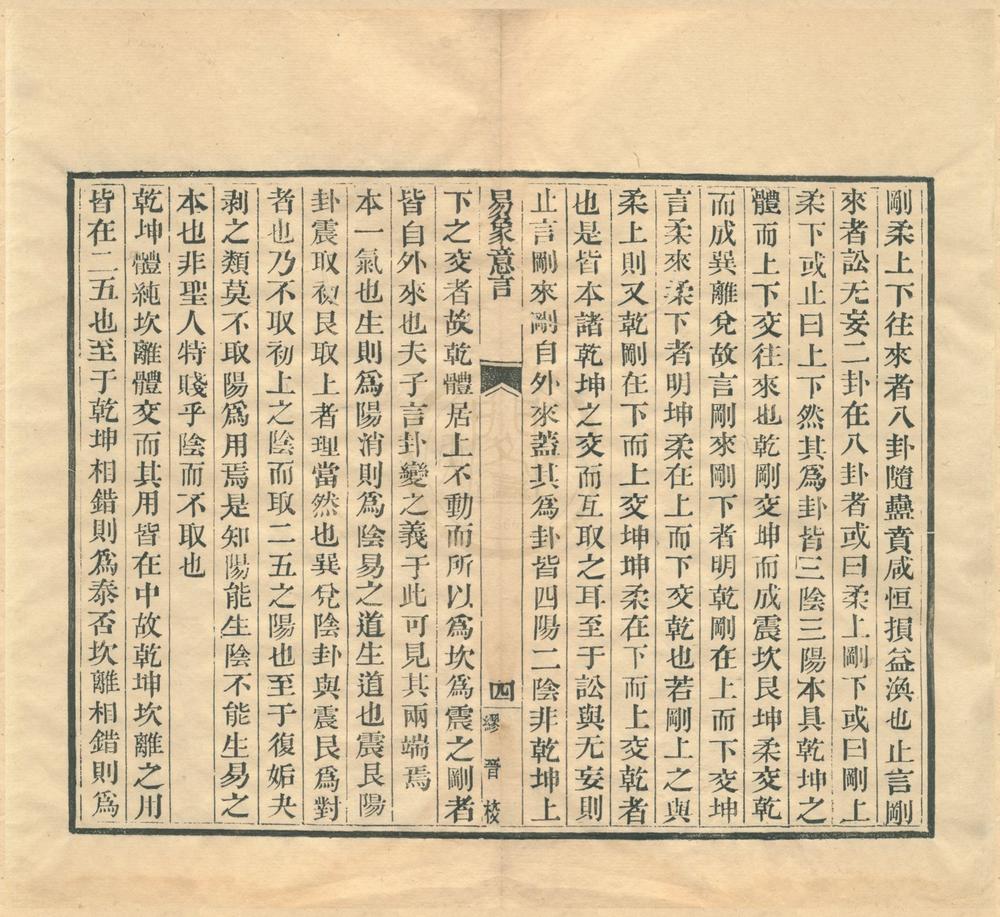 剛柔上下往來者八卦隨蠱賁咸恒損益渙也止言剛
來者訟无妄二卦在八卦者或曰柔上剛下或曰剛上
柔下或止曰上下然其爲卦皆三陰三陽本具乾坤之
體而上下交往來也乾剛交坤而成震坎艮坤柔交乾
而成巽離兌故言剛來剛下者明乾剛在上而下交坤
言柔來柔下者明坤柔在上而下交乾也若剛上之與
柔上則又乾剛在下而上交坤坤柔在下而上交乾者
也是皆本諸乾坤之交而互取之耳至于訟與无妄則
止言剛來剛自外來蓋其爲卦皆四陽二陰非乾坤上
易象意言
四
繆晉校
下之交者故乾體居上不動而所以爲坎爲震之剛者
皆自外來也夫子言卦變之義于此可見其兩端焉
本一氣也生則爲陽消則爲陰易之道生道也震艮陽
卦震取初艮取上者理當然也巽兌陰卦與震艮爲對
者也乃不取初上之陰而取二五之陽也至于復姤夬
剥之類莫不取陽爲用焉是知陽能生陰不能生易之
本也非聖人特賤乎陰而不取也
乾坤體純坎離體交而其用皆在中故乾坤坎離之用
皆在二五也至于乾坤相錯則爲泰否坎離相錯則爲